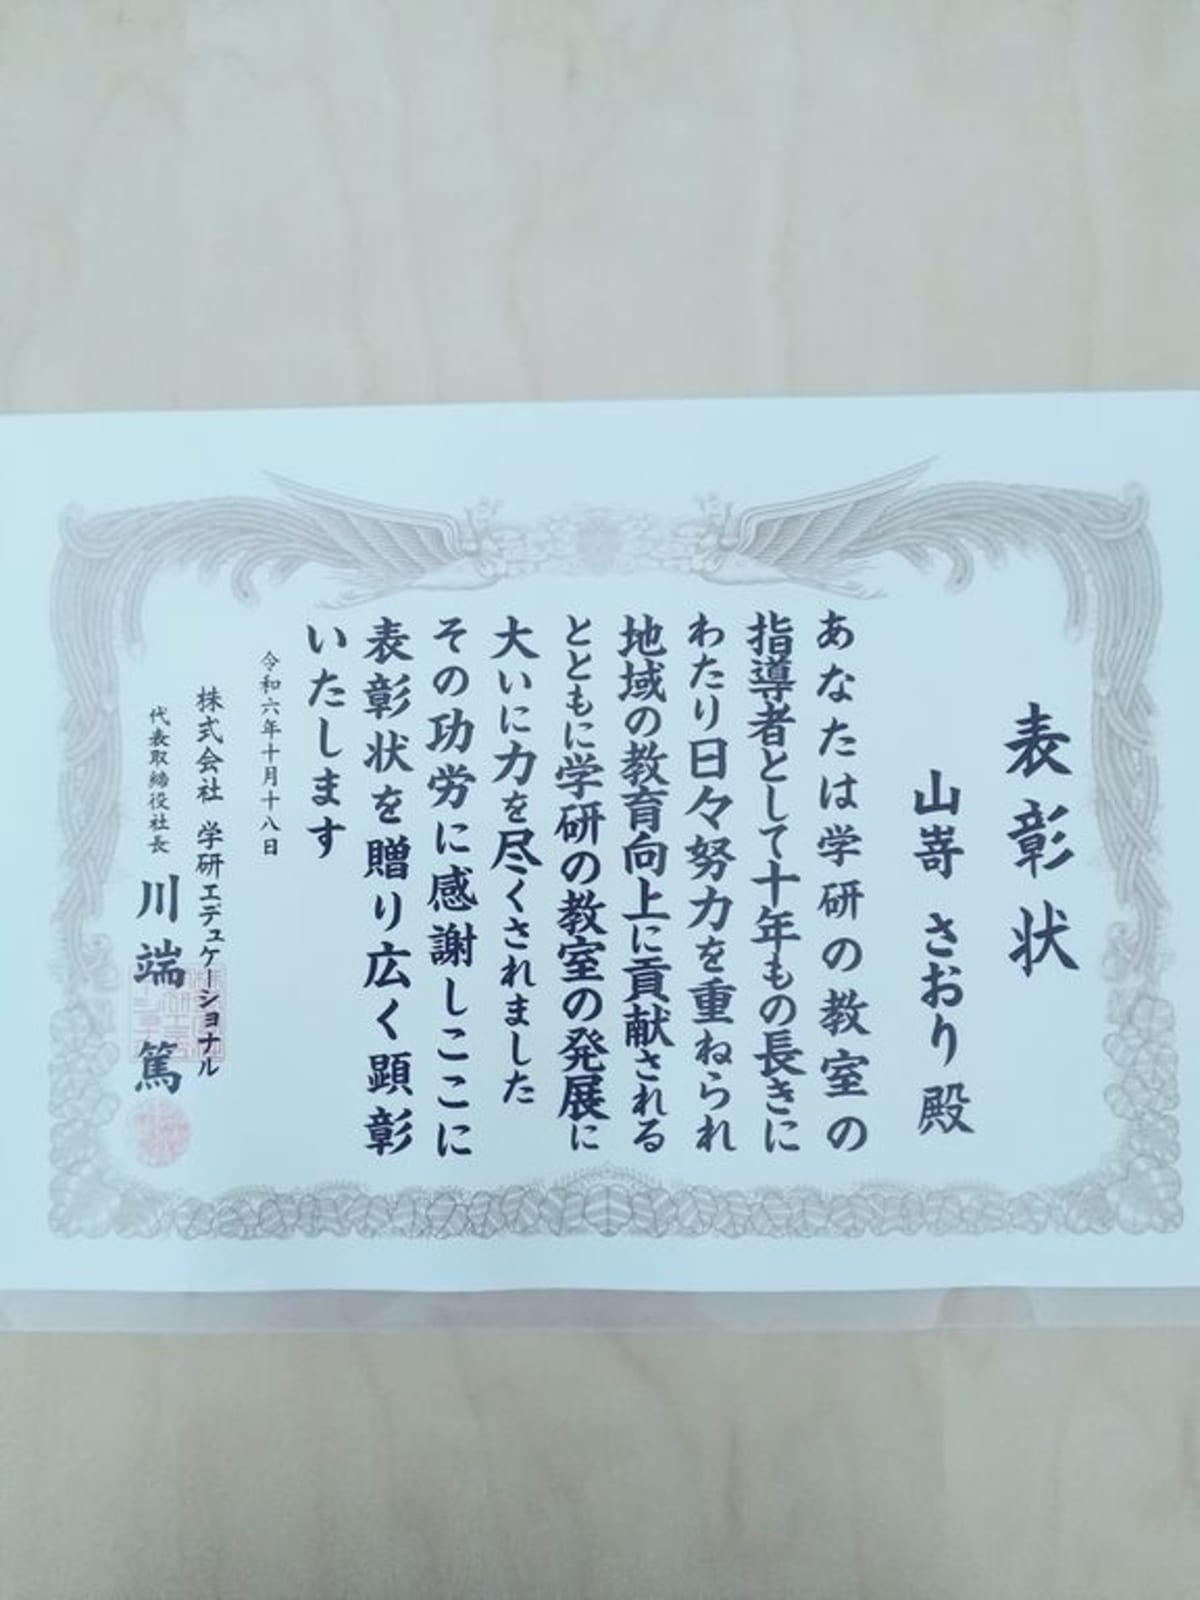 表彰状
山嵜 さおり 殿
あなたは学研の教室の
指導者として十年もの長きに
わたり日々努力を重ねられ
地域の教育向上に貢献される
とともに学研の教室の発展に
大いに力を尽くされました
その功労に感謝しここに
表彰状を贈り広く顕彰
いたします
令和六年十月十八日
株式会社 学研エデュケーショナル
代表取締役社長 川端 篤